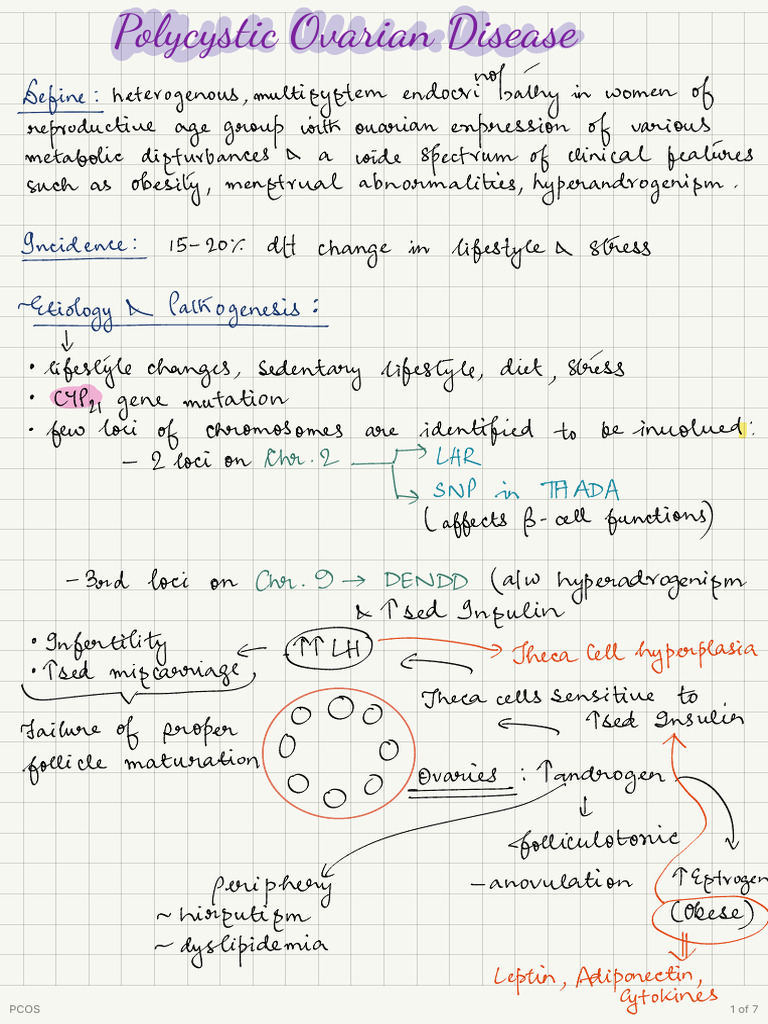 Polycystic Ovarian Disease
Define: heterogenous, multisystem endocrinopathy in women of
reproductive age group with ovarian expression of various
metabolic disturbances & a wide spectrum of clinical features
such as obesity, menstrual abnormalities, hyperandrogenism.
Incidence: 15-20% d/t change in lifestyle & stress
~Etiology & Pathogenesis:
↓
• lifestyle changes, sedentary lifestyle, diet, stress
• CYP21 gene mutation
• few loci of chromosomes are identified to be involved:
- 2 loci on Chr. 2 → LHR
→ SNP in THADA
(affects β-cell functions)
- 3rd loci on Chr. 9 → DENDD (a/w hyperadrogenism
& ↑sed Insulin
• Infertility ← ↑↑ LH → Theca Cell hyperplasia
• ↑sed miscarriage ←
Theca cells sensitive to
← ↑sed Insulin
Failure of proper
follicle maturation
Ovaries: ↑androgen
↓
folliculotonic
- anovulation
↑Estrogen
(Obese)
periphery
~ hirsutism
~ dyslipidemia
Leptin, Adiponectin,
Cytokines
PCOS
1 of 7